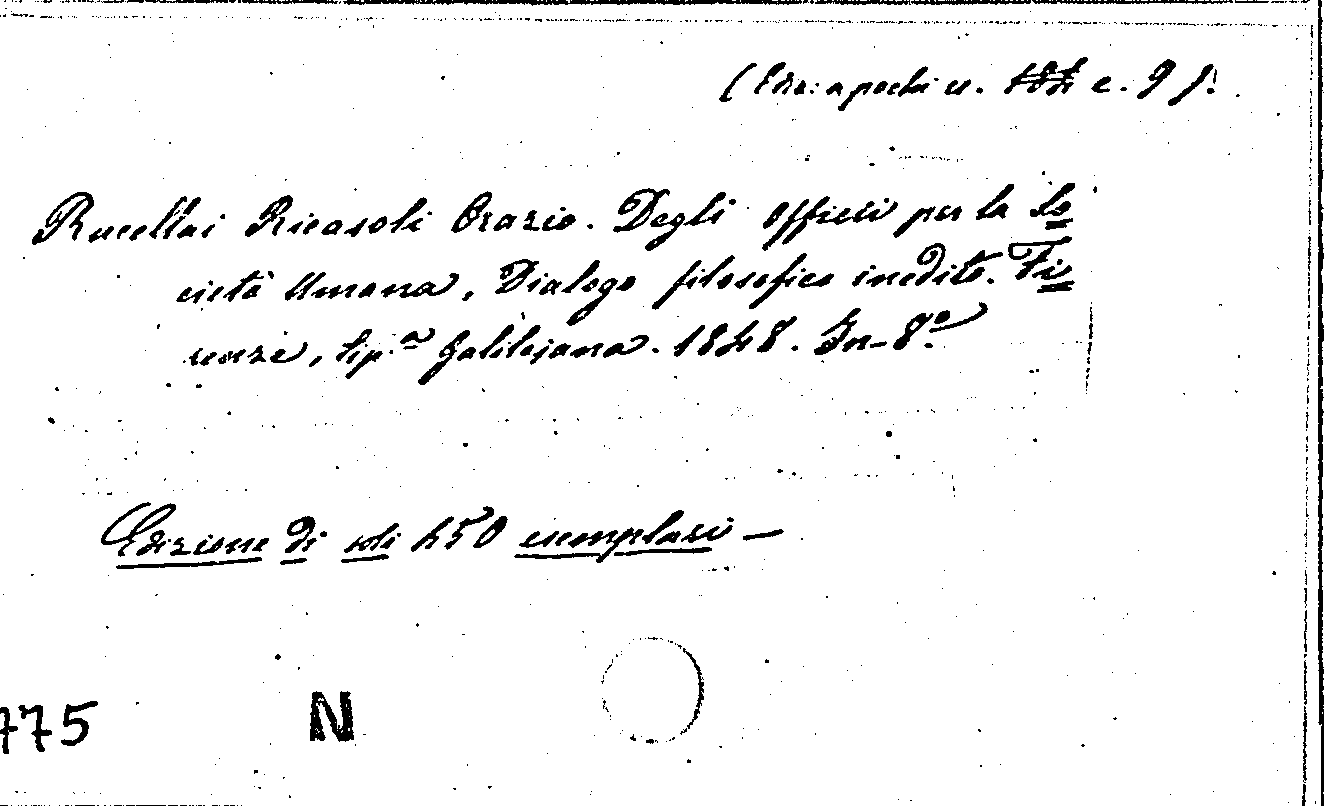 (Ediz: a pochi es. c. 9 f.
Rucellai Ricasoli Orazio. Degli offici per la So=
cietà Umana, Dialogo filosofico inedito. Fi=
renze, tip.ª Galilejana. 1848. In-8.º
Edizione di soli 450 esemplari —
775 N